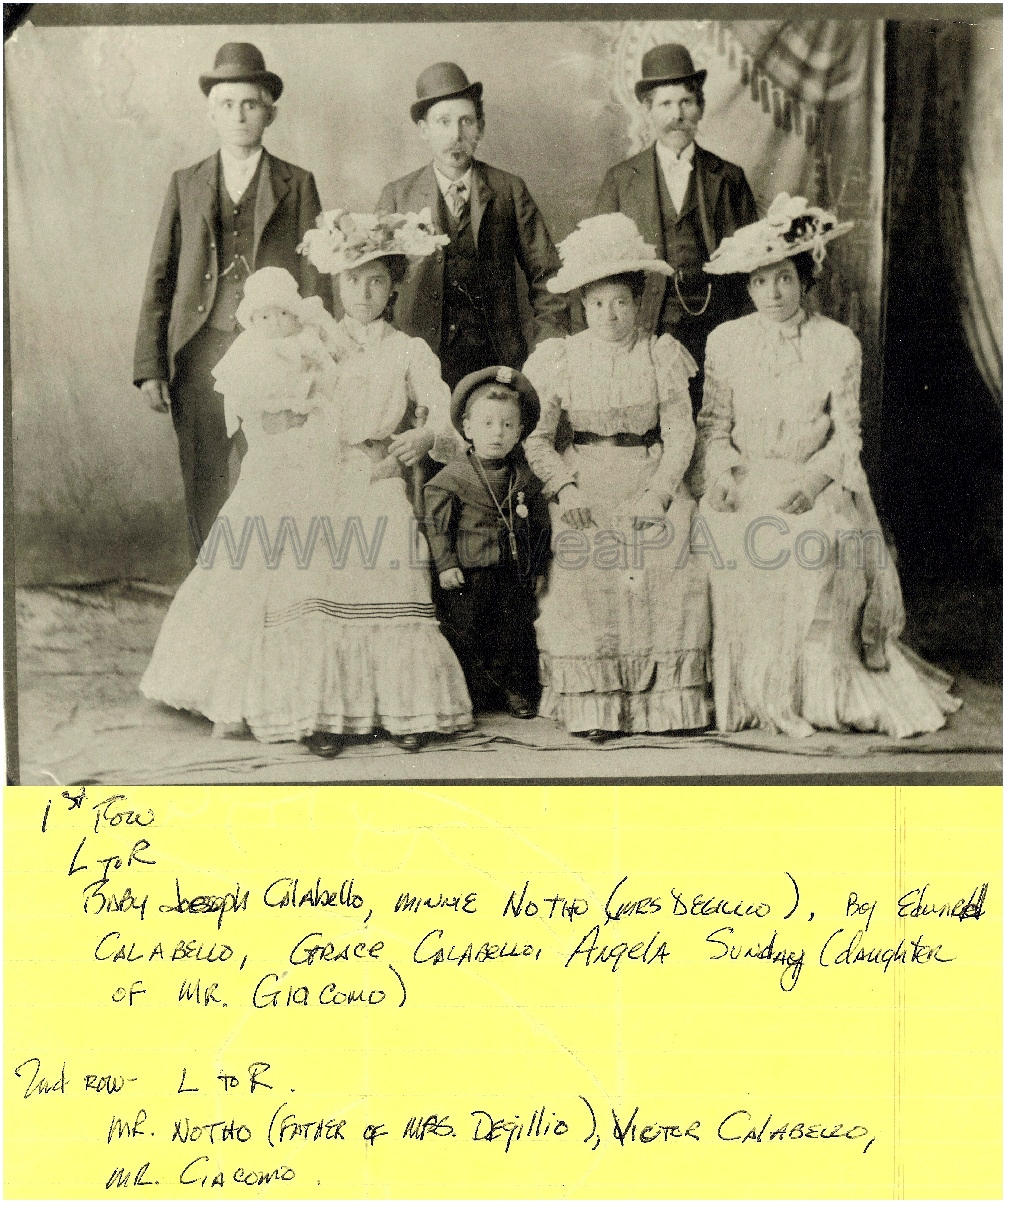 WWW.DuryeaPA.Com
1st Row
L to R
Baby Joseph Calabello, Minnie Notho (Mrs Degillio), Boy Edward
Calabello, Grace Calabello, Angela Sunday (daughter
of Mr. Giacomo)
2nd row - L to R.
Mr. Notho (Father of Mrs. Degillio), Victor Calabello,
Mr. Giacomo.